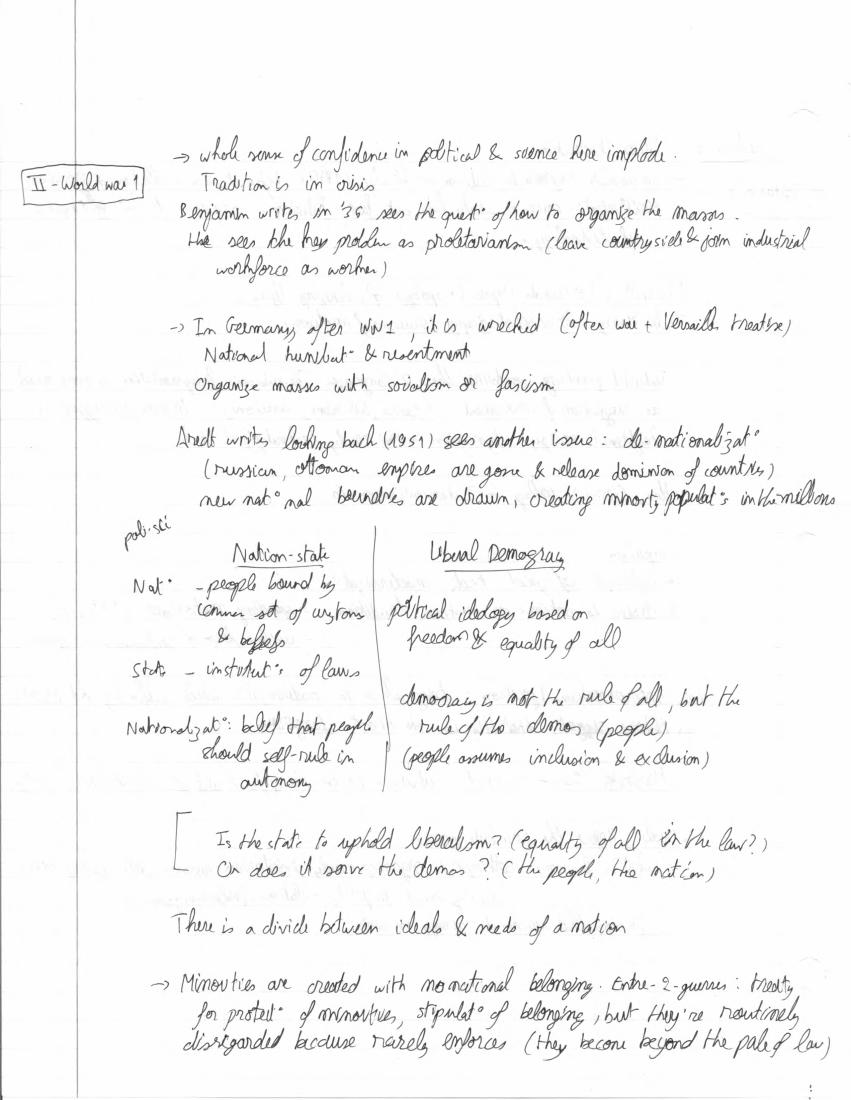 → whole sense of confidence in political & science here implode.
II - World war 1
Tradition is in crisis
Benjamin writes in '36 sees the quest° of how to organize the masses.
He sees the key problem as proletarianism (leave countryside & join industrial
workforce as worker)
→ In Germany, after WW1, it is wrecked (after war + Versailles treatise)
National humiliat° & resentment
Organize masses with socialism or fascism
Aredt writes looking back (1951) sees another issue: de-nationalizat°
(russian, ottoman empires are gone & release dominion of countries)
new nat°nal boundries are drawn, creating minority populat°s in the millions
pol-sci
Nation-state
Nat° - people bound by
common set of customs
& beliefs
State - institut°s of laws
Nationalizat°: belief that people
should self-rule in
autonomy
Liberal Democracy
political ideology based on
freedom & equality of all
democracy is not the rule of all, but the
rule of the demos (people)
(people assumes inclusion & exclusion)
Is the state to uphold liberalism? (equality of all in the law?)
Or does it serve the demos? (the people, the nation)
There is a divide between ideals & needs of a nation
→ Minorities are created with no national belonging. Entre-2-guerres: treaty
for protect° of minorities, stipulat° of belonging, but they're routinely
disregarded because rarely enforces (they become beyond the pale of law)